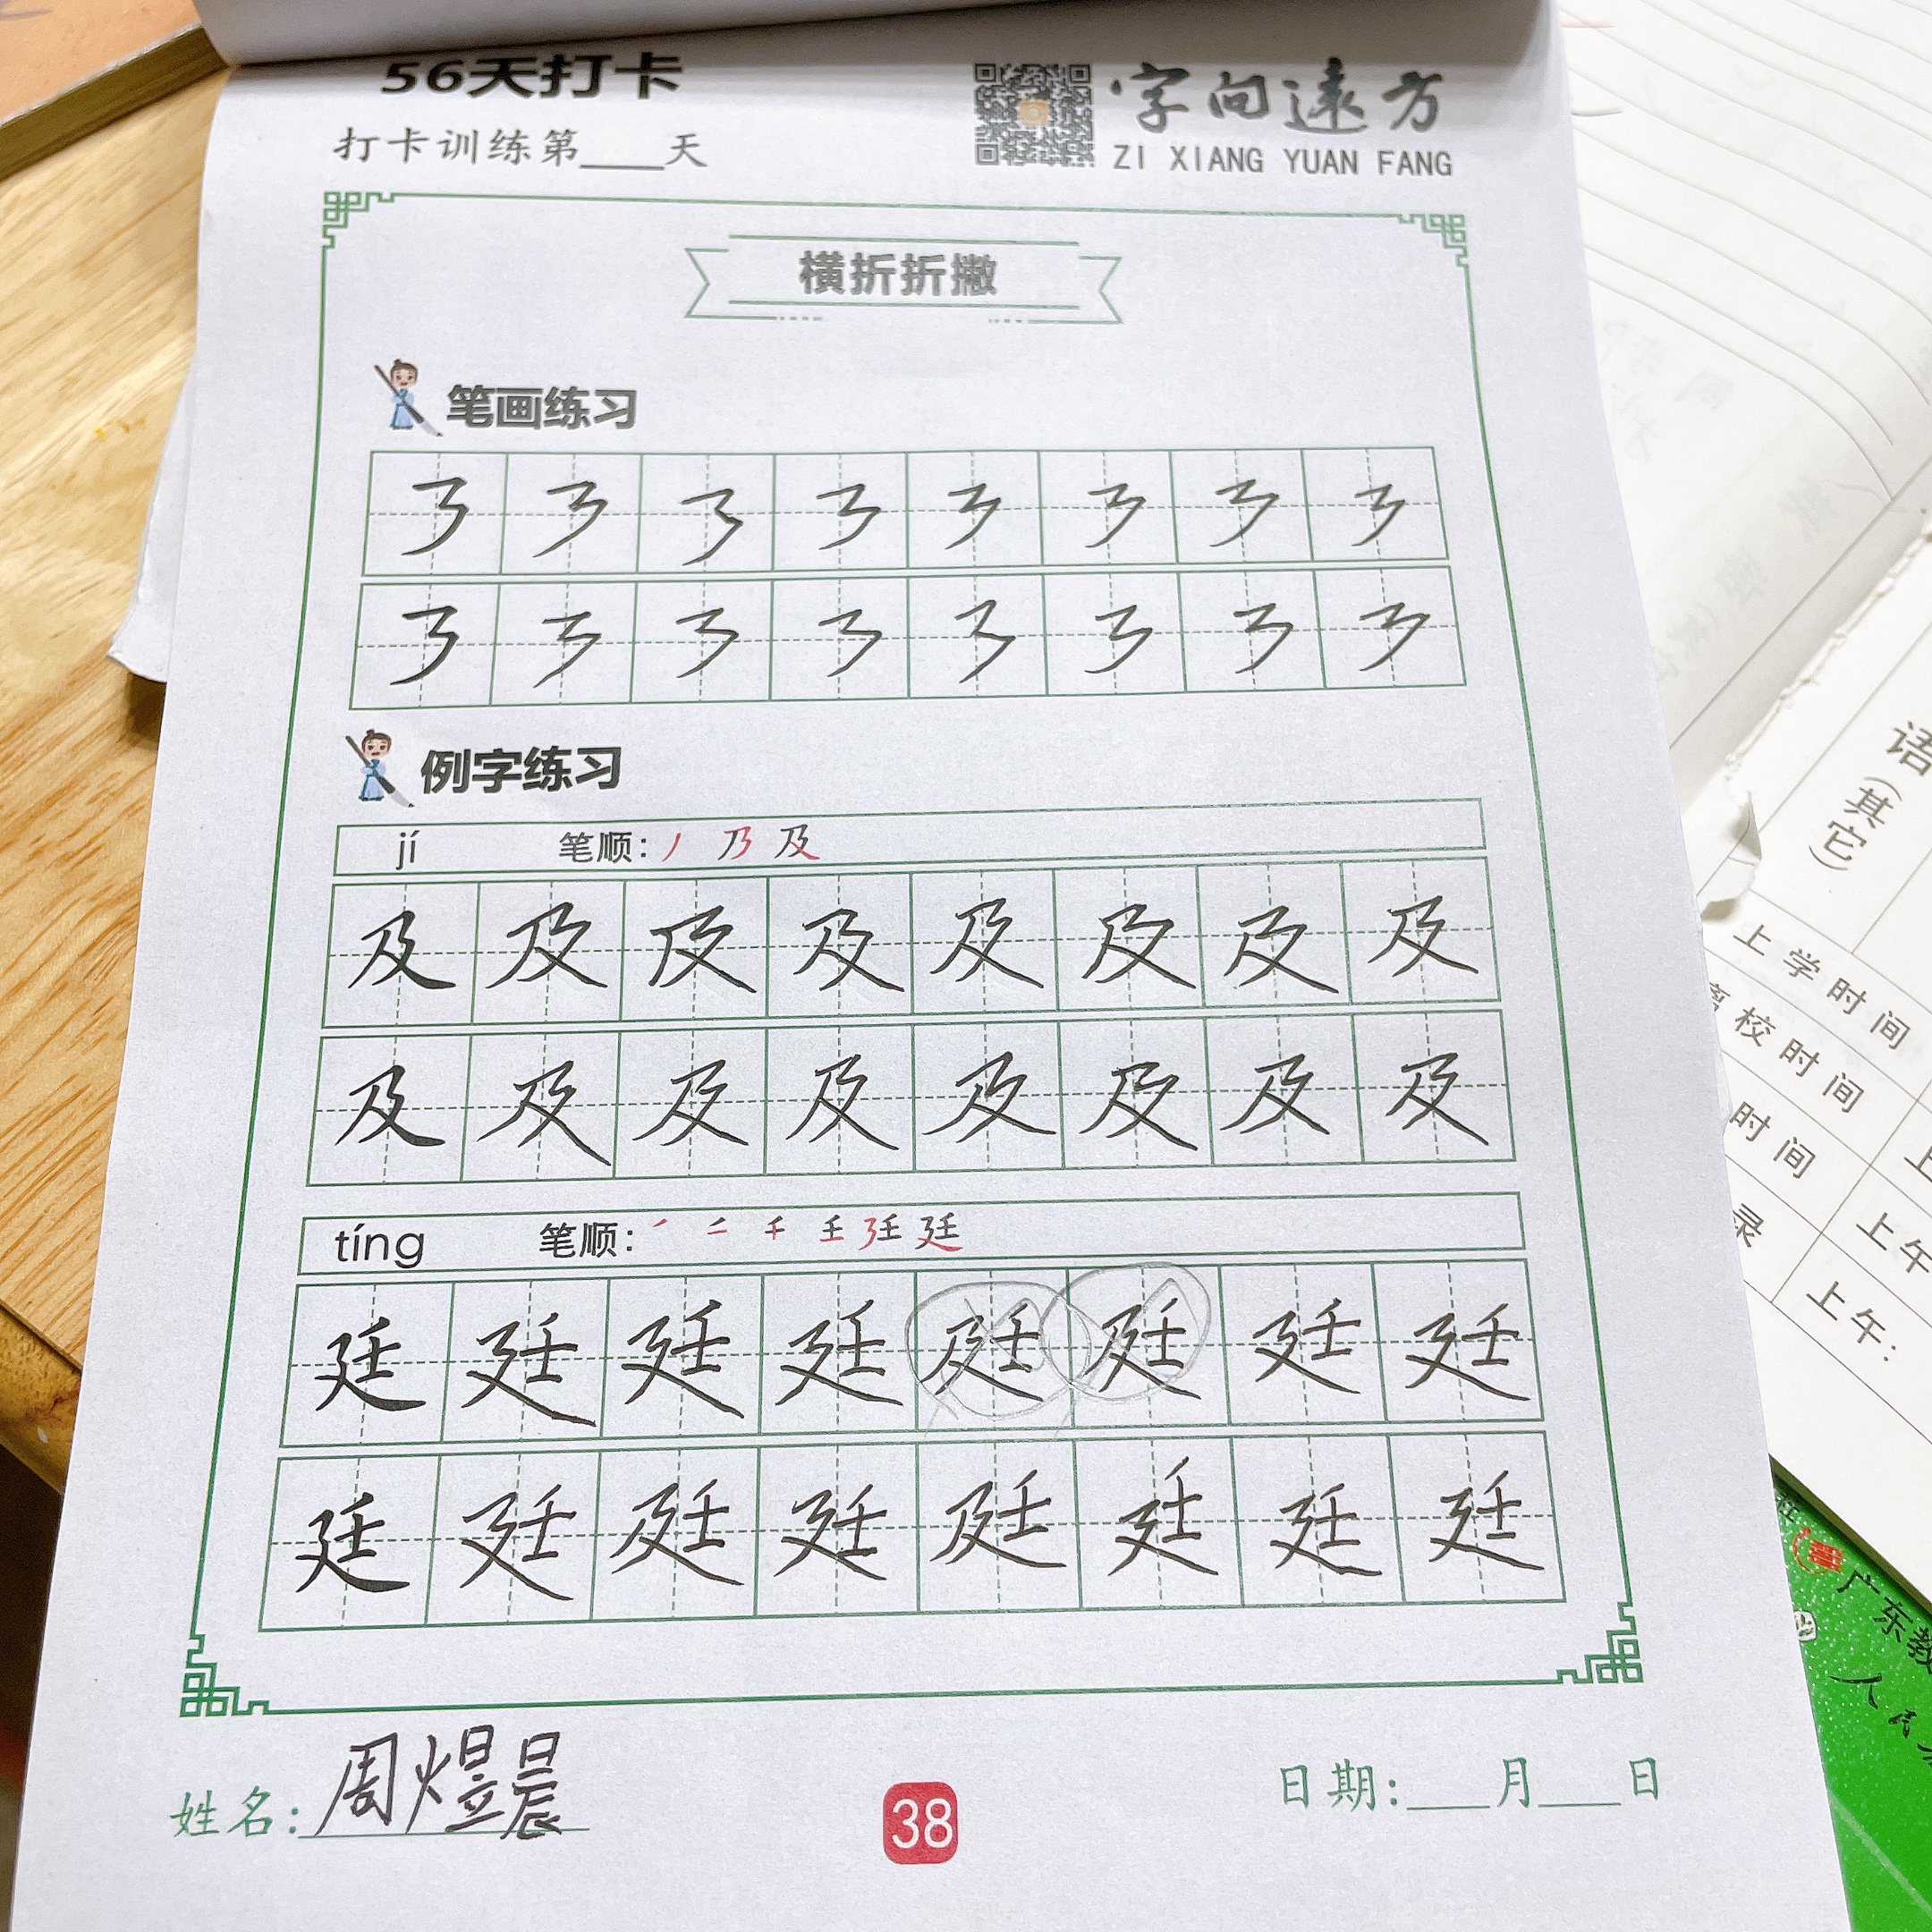 56天打卡
打卡训练第____天
字向遠方
ZI XIANG YUAN FANG
横折折撇
笔画练习
㇋ ㇋ ㇋ ㇋ ㇋ ㇋ ㇋ ㇋
㇋ ㇋ ㇋ ㇋ ㇋ ㇋ ㇋ ㇋
例字练习
jí 笔顺: 丿 乃 及
及 及 及 及 及 及 及 及
及 及 及 及 及 及 及 及
tíng 笔顺:
廷 廷 廷 廷 廷 廷 廷 廷
廷 廷 廷 廷 廷 廷 廷 廷
姓名: 周煜晨
38
日期:___月___日
语
(其它)
上学时间
离校时间
时间
录
上午
上午:
广东教
人民